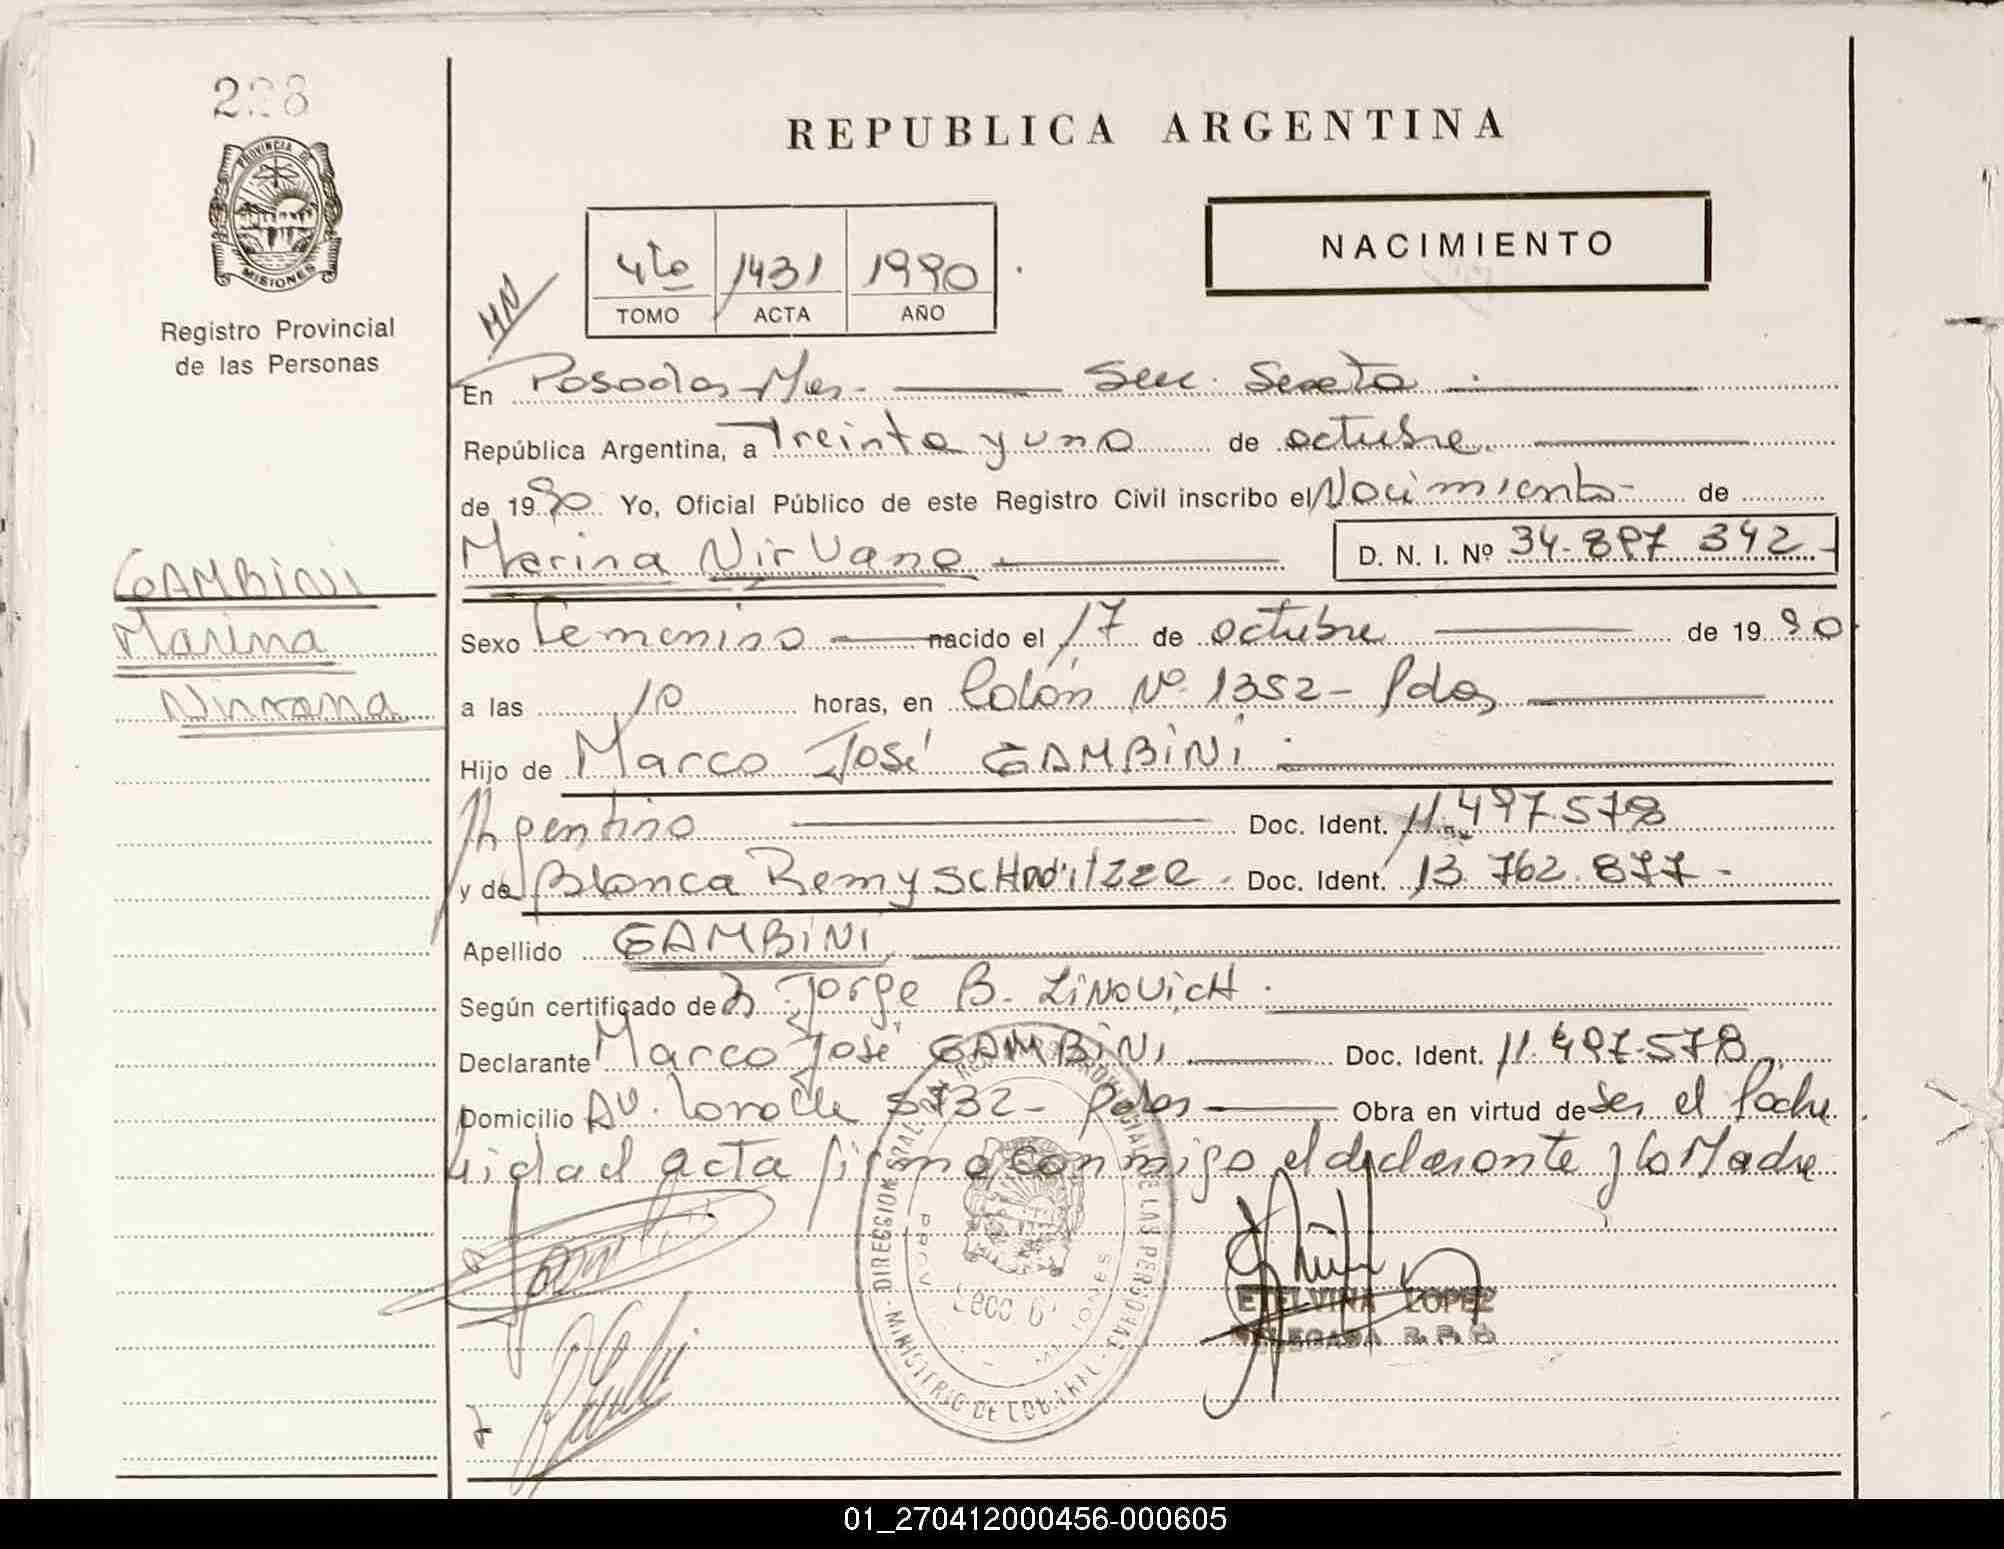 REPUBLICA ARGENTINA
PROVINCIA DE
MISIONES
Registro Provincial
de las Personas
4to 1431 1990
TOMO ACTA AÑO
NACIMIENTO
HN
En Posadas Mes. Secc. Sexta
República Argentina, a Treinta y uno de octubre
de 1990 Yo, Oficial Público de este Registro Civil inscribo el Nacimiento de
Marina Nirvana D. N. I. Nº 34.897 342
GAMBINI
Marina
Nirvana
Sexo Femenino nacido el 17 de octubre de 1990
a las 10 horas, en Colón Nº 1352 - Pdas
Hijo de Marco José GAMBINI
Argentino Doc. Ident. 11.497.578
y de Blanca Remy Doc. Ident. 13.762.877 -
Apellido GAMBINI
Según certificado de Jorge B. LINOVICH
Declarante Marco José GAMBINI Doc. Ident. 11.497.578
Domicilio AV. 5732 - Pdas Obra en virtud de ser el Padre
Leida el acta firma con migo el declarante y la Madre
DIRECCION GRAL. DE LAS PERSONAS
MINISTERIO DE
ETELVINA LOPEZ
DELEGADA
01_270412000456-000605